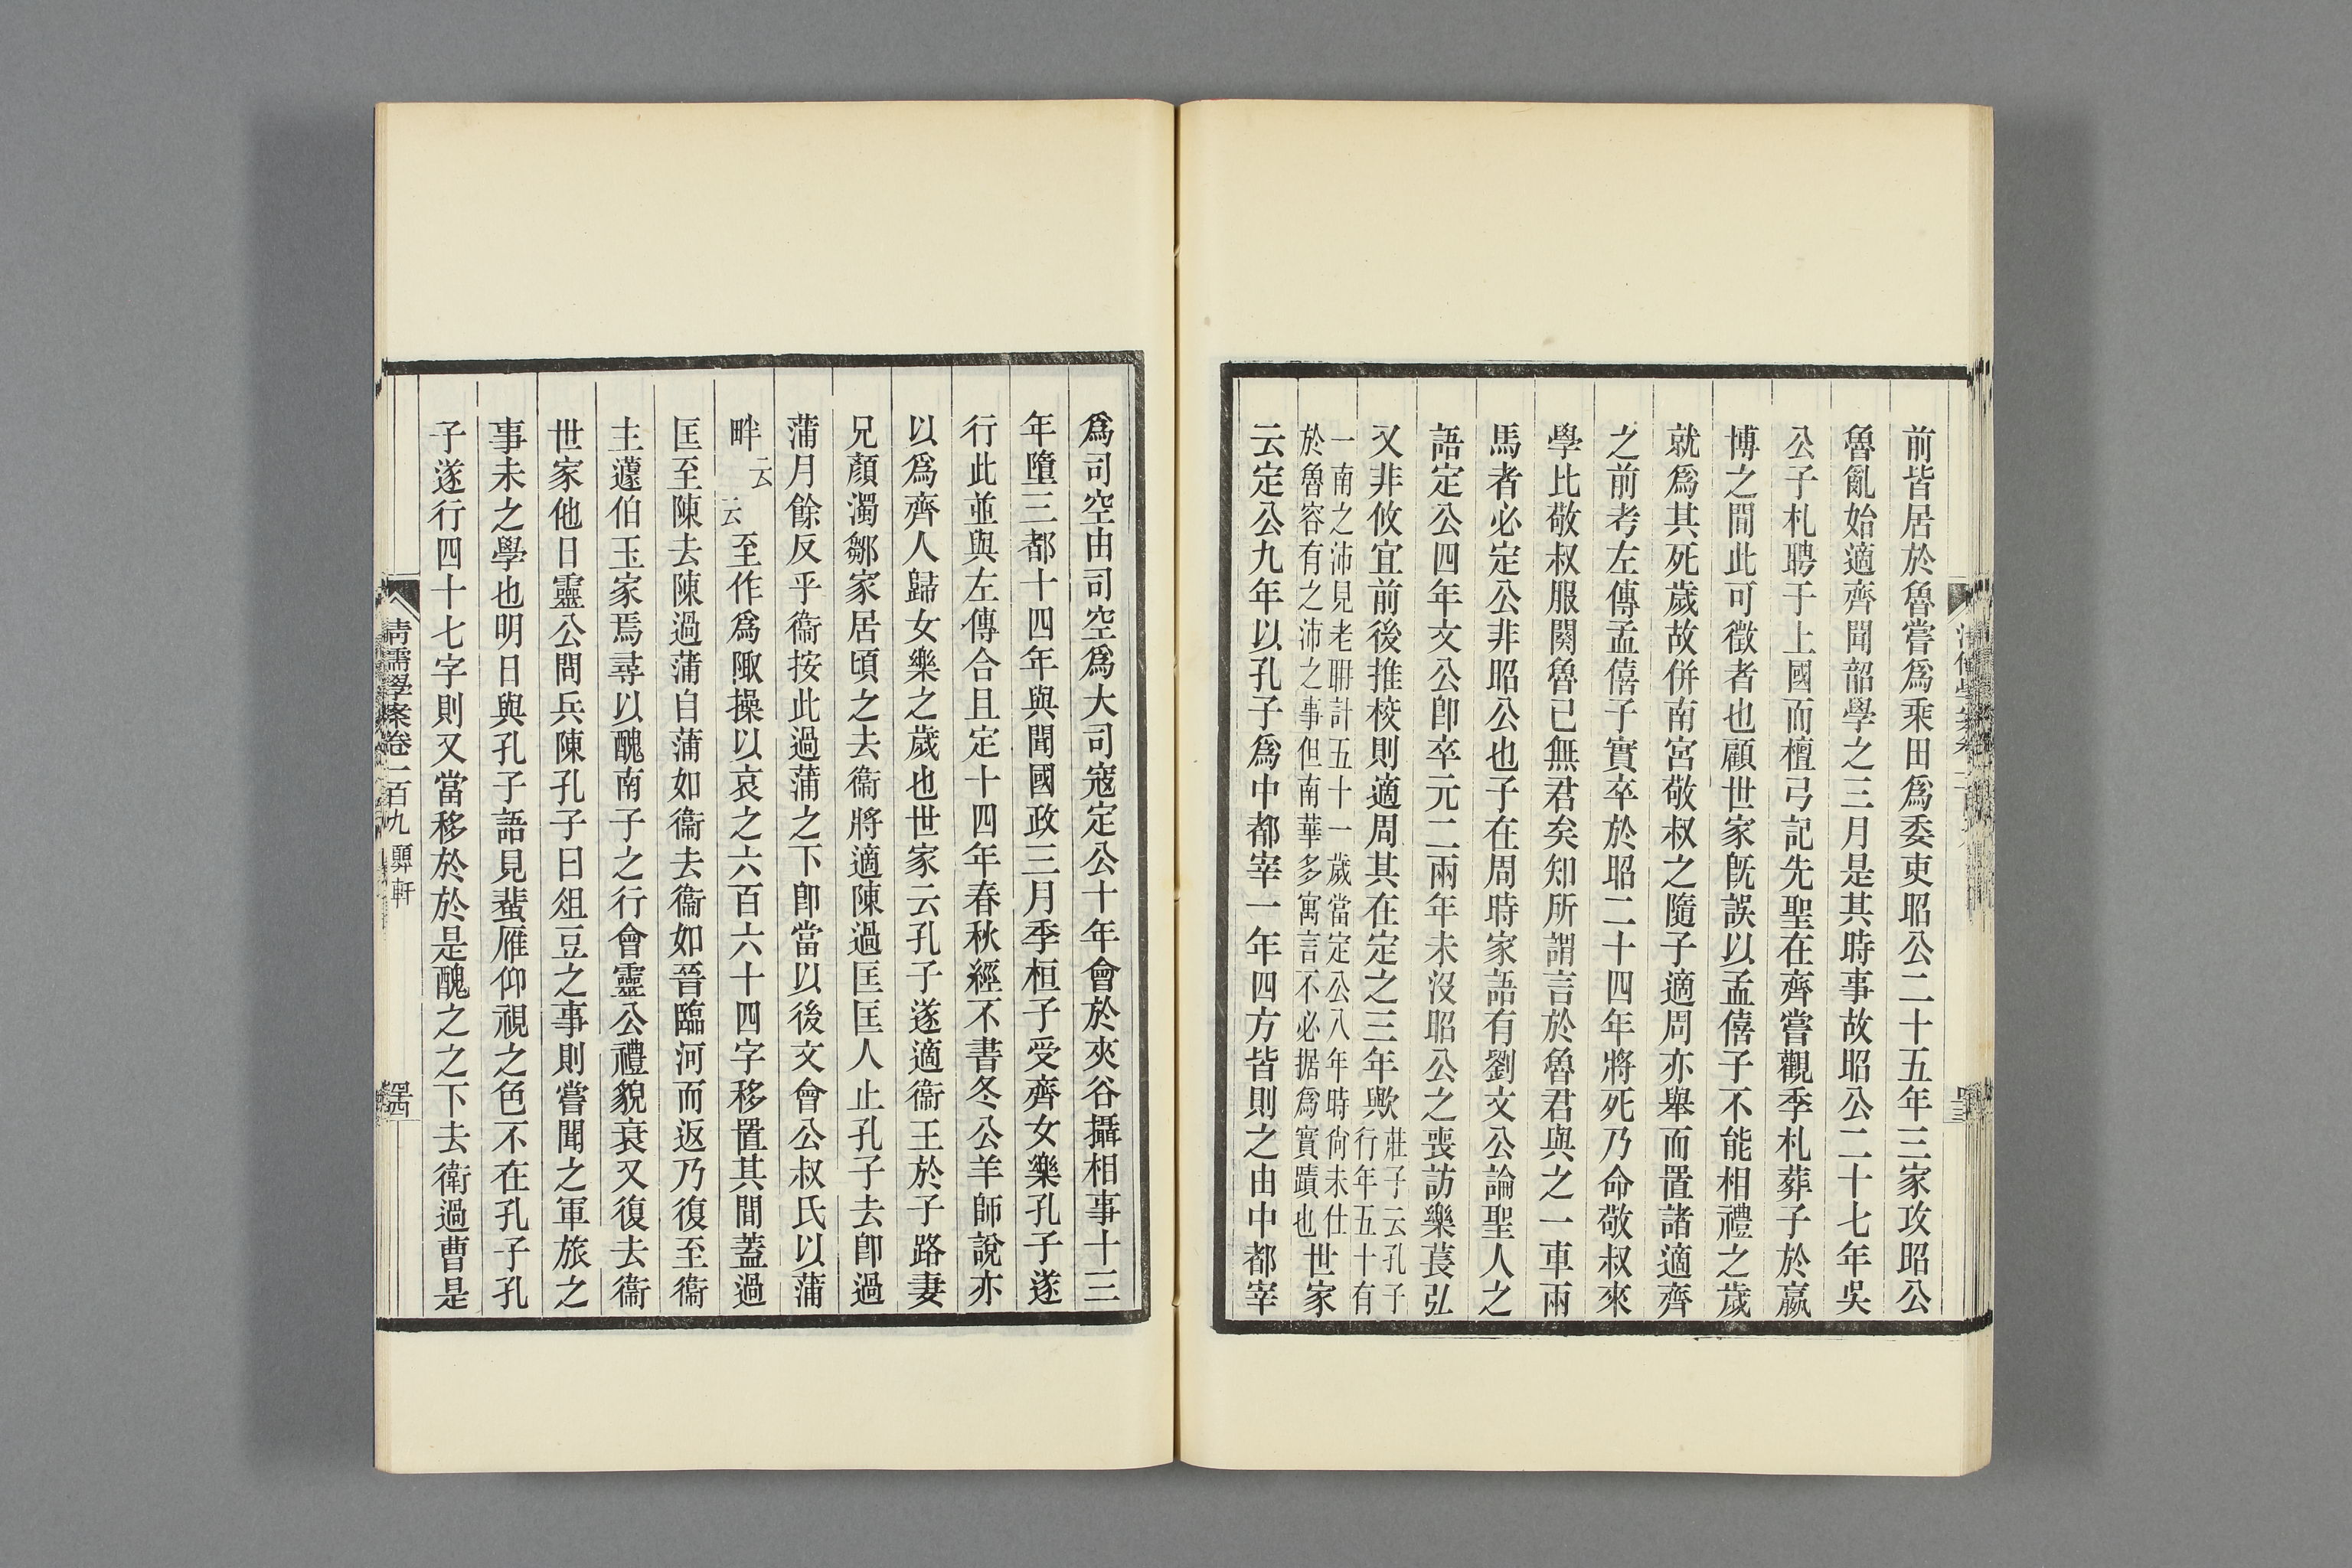 前皆居於魯嘗爲乘田爲委吏昭公二十五年三家攻昭公
魯亂始適齊聞韶學之三月是其時事故昭公二十七年吳
公子札聘于上國而檀弓記先聖在齊嘗觀季札葬子於嬴
博之閒此可徵者也顧世家旣誤以孟僖子不能相禮之歲
就爲其死歲故併南宮敬叔之隨子適周亦舉而置諸適齊
之前考左傳孟僖子實卒於昭二十四年將死乃命敬叔來
學比敬叔服闋魯已無君矣知所謂言於魯君與之一車兩
馬者必定公非昭公也子在周時家語有劉文公論聖人之
語定公四年文公卽卒元二兩年未沒昭公之喪訪樂萇弘
又非攸宜前後推校則適周其在定之三年歟莊子云孔子行年五十有
一南之沛見老聃計五十一歲當定公八年時尙未仕於魯容有之沛之事但南華多寓言不必据爲實蹟也世家
云定公九年以孔子爲中都宰一年四方皆則之由中都宰
爲司空由司空爲大司寇定公十年會於夾谷攝相事十三
年墮三都十四年與聞國政三月季桓子受齊女樂孔子遂
行此並與左傳合且定十四年春秋經不書冬公羊師說亦
以爲齊人歸女樂之歲也世家云孔子遂適衞主於子路妻
兄顏濁鄒家居頃之去衞將適陳過匡匡人止孔子去卽過
蒲月餘反乎衞按此過蒲之下卽當以後文會公叔氏以蒲
畔云云至作爲陬操以哀之六百六十四字移置其閒蓋過
匡至陳去陳過蒲自蒲如衞去衞如晉臨河而返乃復至衞
主蘧伯玉家焉尋以醜南子之行會靈公禮貌衰又復去衞
世家他日靈公問兵陳孔子曰俎豆之事則嘗聞之軍旅之
事未之學也明日與孔子語見蜚雁仰視之色不在孔子孔
子遂行四十七字則又當移於於是醜之之下去衛過曹是
清儒學案卷一百九 顨軒
四十四